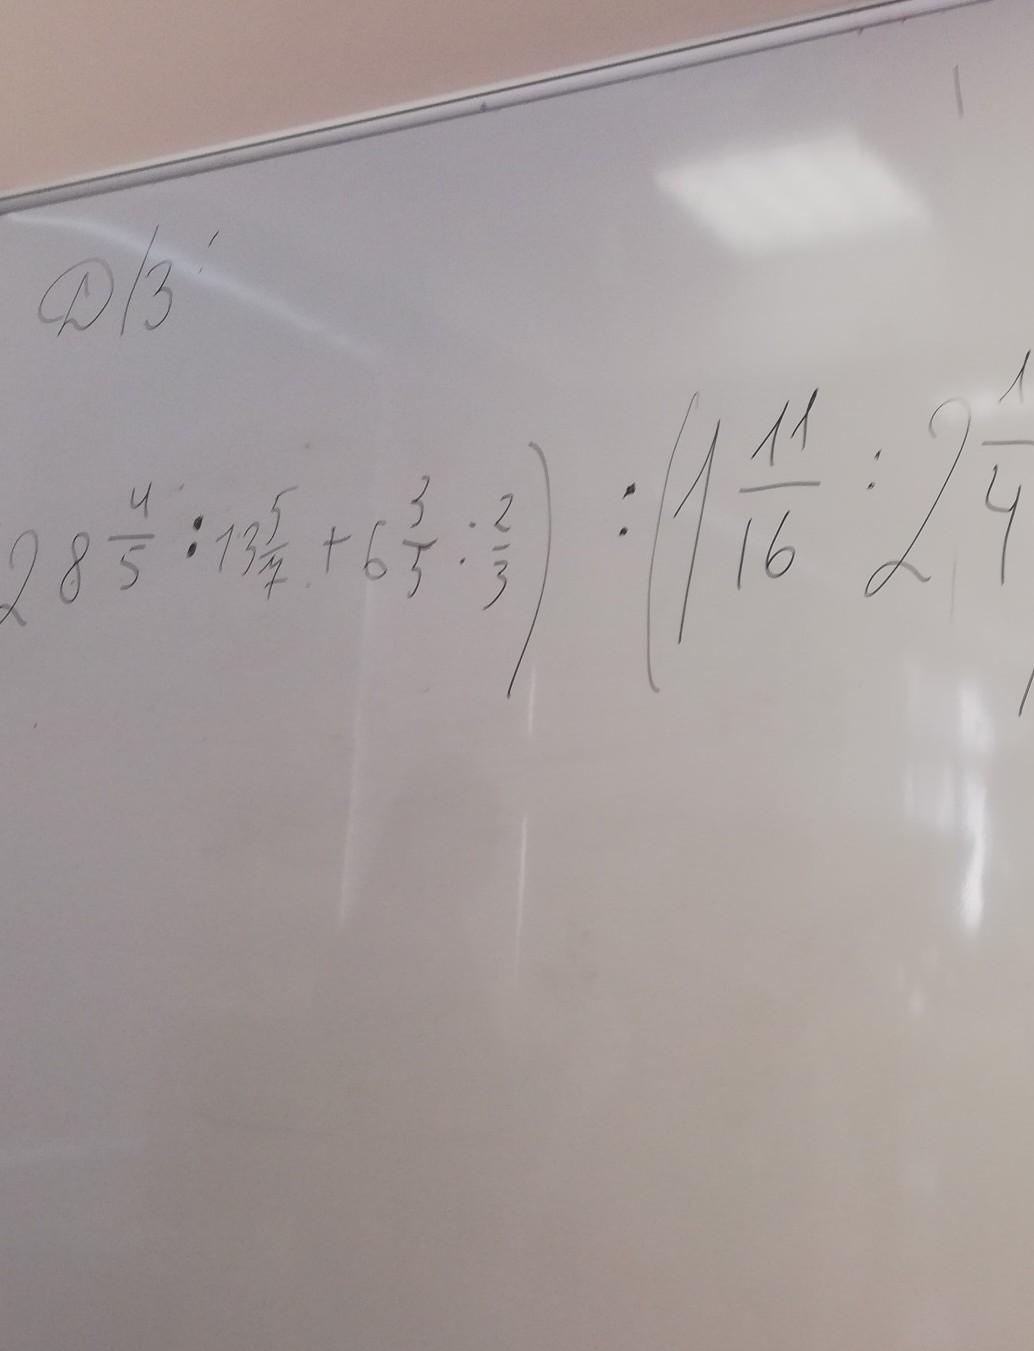 Д/З
28 4/5 : 13 5/7 + 6 3/5 : 2/3) : (1 11/16 : 2 1/4